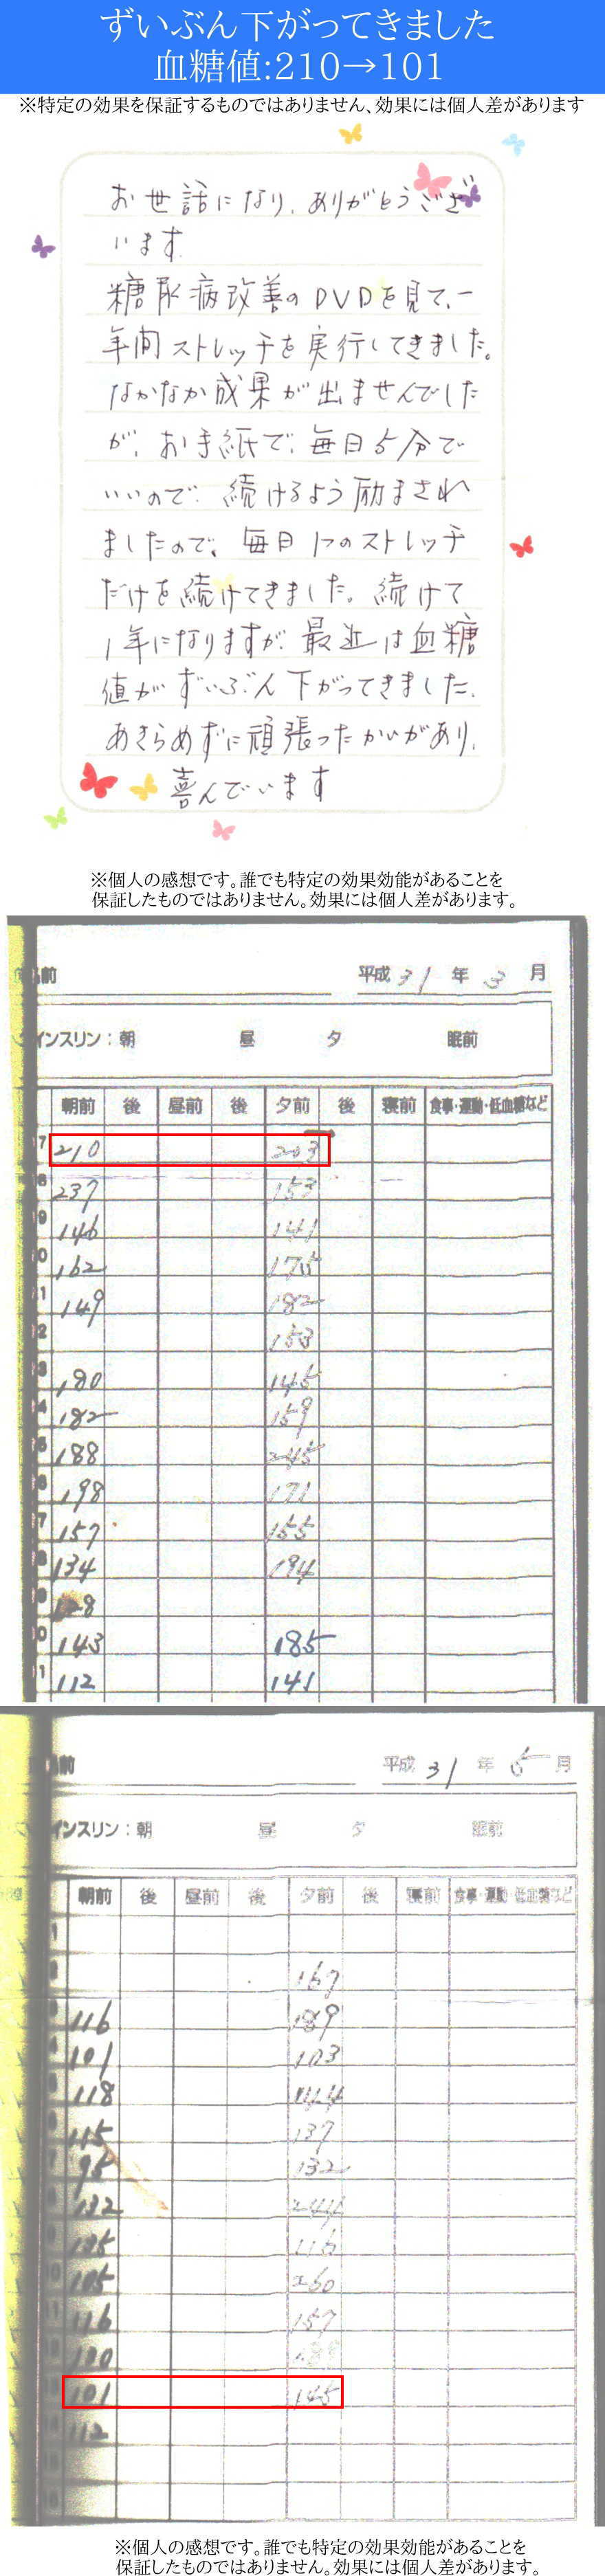 ずいぶん下がってきました
血糖値:210→101
※特定の効果を保証するものではありません、効果には個人差があります
お世話になり、ありがとうござ
います
糖尿病改善のDVDを見て、一
年間ストレッチを実行してきました。
なかなか成果が出ませんでした
が、お手紙で、毎日5分で
いいので、続けるよう励まされ
ましたので、毎日1つのストレッチ
だけを続けてきました。続けて
1年になりますが、最近は血糖
値がずいぶん下がってきました、
あきらめずに頑張ったかいがあり、
喜んでいます
※個人の感想です。誰でも特定の効果効能があることを
保証したものではありません。効果には個人差があります。
前 平成 31 年 3 月
インスリン：朝 昼 夕 眠前
朝前 後 昼前 後 夕前 後 寝前 食事・運動・低血糖など
7 210 203
8 237 153
9 146 141
0 162 175
1 149 182
2 153
3 180 145
4 182 159
5 188 245
6 198 171
7 157 155
8 134 194
9
0 143 185
1 112 141
前 平成 31 年 5 月
インスリン：朝 昼 夕 眠前
朝前 後 昼前 後 夕前 後 寝前 食事・運動・低血糖など
167
116 189
101 103
118 144
115 137
95 132
132 244
135 116
105 260
116 157
130
101 145
112
※個人の感想です。誰でも特定の効果効能があることを
保証したものではありません。効果には個人差があります。